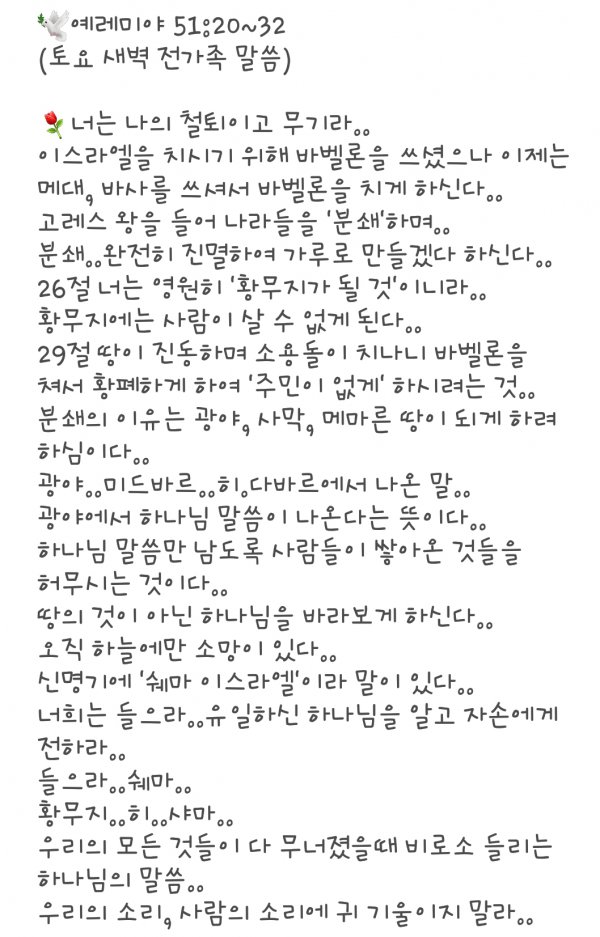 🕊예레미야 51:20~32
(토요 새벽 전가족 말씀)
🌹너는 나의 철퇴이고 무기라..
이스라엘을 치시기 위해 바벨론을 쓰셨으나 이제는
메대, 바사를 쓰셔서 바벨론을 치게 하신다..
고레스 왕을 들어 나라들을 '분쇄'하며..
분쇄..완전히 진멸하여 가루로 만들겠다 하신다..
26절 너는 영원히 '황무지가 될 것'이니라..
황무지에는 사람이 살 수 없게 된다..
29절 땅이 진동하며 소용돌이 치나니 바벨론을
쳐서 황폐하게 하여 '주민이 없게' 하시려는 것..
분쇄의 이유는 광야, 사막, 메마른 땅이 되게 하려
하심이다..
광야..미드바르..히.다바르에서 나온 말..
광야에서 하나님 말씀이 나온다는 뜻이다..
하나님 말씀만 남도록 사람들이 쌓아온 것들을
허무시는 것이다..
땅의 것이 아닌 하나님을 바라보게 하신다..
오직 하늘에만 소망이 있다..
신명기에 '쉐마 이스라엘'이라 말이 있다..
너희는 들으라..유일하신 하나님을 알고 자손에게
전하라..
들으라..쉐마..
황무지..히..샤마..
우리의 모든 것들이 다 무너졌을때 비로소 들리는
하나님의 말씀..
우리의 소리, 사람의 소리에 귀 기울이지 말라..